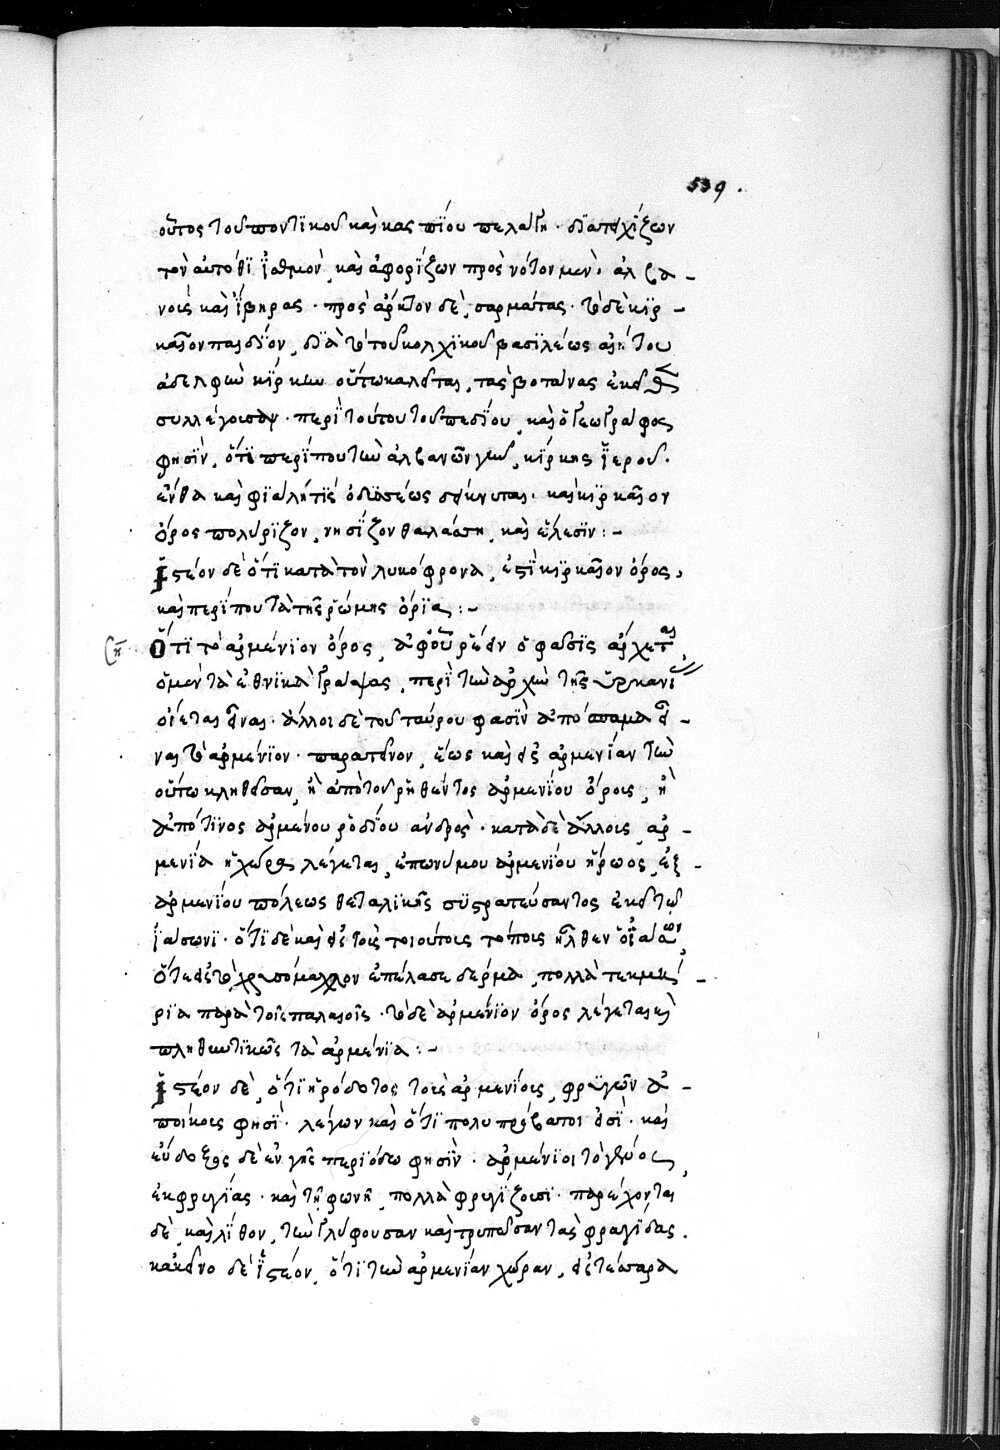 539.
οὗτος τοῦ ποντϊκοῦ καὶ κασπίου πελάγη· διατειχίζων
τὸν αὐτόθϊ ἰσθμὸν, καὶ ἀφορίζων πρὸς νότον μὲν, ἀλβα-
νοὺς καὶ ἴβηρας· πρὸς ἄρκτον δὲ, σαρμάτας· τὸ δὲ κιρ-
καῖον παιδίον, διὰ τὸ τοῦ κολχϊκοῦ βασιλέως αἰήτου
ἀδελφὴν κίρκην οὕτω καλεῖται, τὰς βοτάνας ἐκεῖθεν
συλλέγουσαν· περὶ τούτου τοῦ πεδίου, καὶ ὁ γεωγράφος
φησὶν, ὅτι περί που τὴν ἀλβανῶν γῆν, κίρκης ἱερόν·
ἔνθα καὶ φιάλη τίς ὀδυσσέως δείκνυται· καὶ κιρκαῖον
ὄρος πολύριζον, νησίζον θαλάσση, καὶ ἕλεσϊν :-
Ἰστέον δὲ ὅτι κατὰ τὸν λυκόφρονα, ἐστὶ κιρκαῖον ὄρος,
καὶ περί που τὰ τῆς ῥώμης ὅρια :-
Ὅτι τὸ ἀρμένϊον ὄρος, ἀφ' οὗ ῥέειν ὁ φᾶσϊς ἄρχεται,
ὁ μὲν τὰ ἐθνικὰ γράψας, περὶ τὴν ἀρχὴν τῆς ὑρκανίας
οἴεται εἶναι· ἄλλοι δὲ τοῦ ταύρου φασὶν ἀπόσπαμα εἶ-
ναι τὸ ἀρμένϊον· παρατεῖνον, ἕως καὶ εἰς ἀρμενίαν τὴν
οὕτω κληθεῖσαν, ἢ ἀπὸ τοῦ ῥηθέντος ἀρμενίου ὄρους, ἢ
ἀπό τϊνος ἀρμένου ῥοδίου ἀνδρὸς· κατὰ δὲ ἄλλους, ἀρ-
μενία ἡ χώρα λέγεται, ἐπωνύμου ἀρμενίου ἥρωος, ἐξ
ἀρμενίου πόλεως θεταλικῆς συστρατεύσαντος ἐκεῖ τῷ
ἰάσωνϊ· ὅτι δὲ καὶ εἰς τοὺς τοιούτους τόπους ἦλθεν ὁ ἰάσων,
ὅτε εἰς τὸ χρυσόμαλλον ἐπέλασε δέρμα, πολλὰ τεκμή-
ρια παρὰ τοῖς παλαιοῖς· τὸ δὲ ἀρμένϊον ὄρος λέγεται καὶ
πληθυντϊκῶς τὰ ἀρμένια :-
Ἰστέον δὲ, ὅτι ἡρόδοτος τοὺς ἀρμενίους, φρυγῶν ἀ-
ποίκους φησὶ· λέγων καὶ ὅτι πολυπρόβατοι εἰσϊ· καὶ
εὔδοξος δὲ ἐν γῆς περιόδω φησὶν· ἀρμένϊοι τὸ γένος,
ἐκ φρυγίας· καὶ τῆ φωνῆ, πολλὰ φρυγίζουσι· παρέχονται
δὲ, καὶ λίθον, τὴν γλύφουσαν καὶ τρυπῶσαν τὰς σφραγίδας.
κἀκεῖνο δὲ ἰστέον, ὅτϊ τὴν ἀρμενίαν χώραν, εἰς τέσσαρα